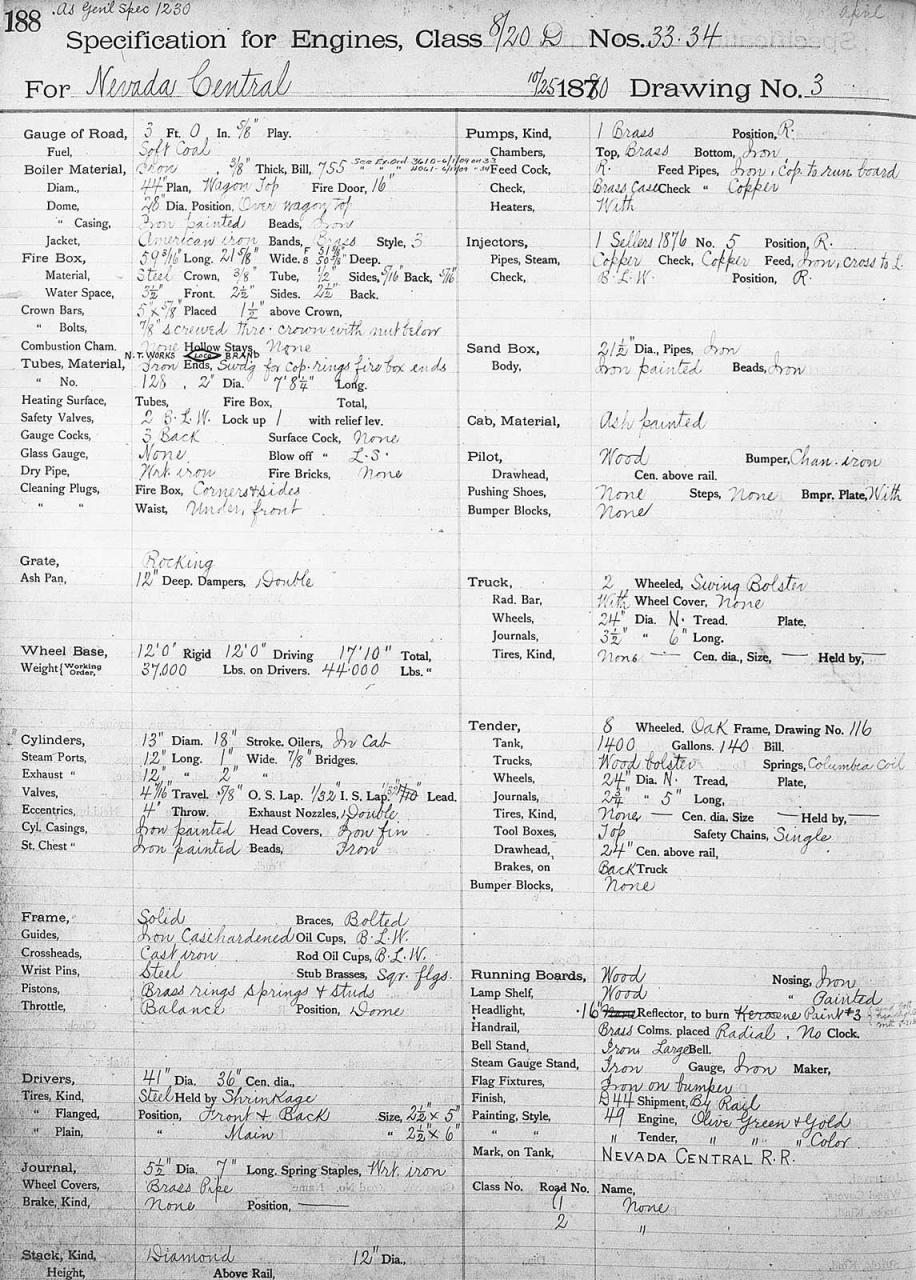 188 As Gen'l Spec 1230
April
Specification for Engines, Class 8/20 D Nos. 33·34
For Nevada Central 10/25 1880 Drawing No. 3
Gauge of Road, 3 Ft. 0 In. 5/8" Play.
Fuel, Soft Coal
Boiler Material, Iron, 3/8" Thick, Bill, 755
Diam., 44" Plan, Wagon Top Fire Door, 16"
Dome, 28" Dia. Position, Over wagon top
" Casing, Iron painted Beads, Iron
Jacket, American iron Bands, Brass Style, 3
Fire Box, 59 3/16" Long. 21 5/8" Wide. F 51 5/8" B 50 5/8" Deep.
Material, Steel Crown, 3/8" Tube, 1/2" Sides, 5/16" Back, 5/16"
Water Space, 3½" Front. 2½" Sides. 2½" Back.
Crown Bars, 5" x 5/8" Placed 1½" above Crown,
" Bolts, 7/8" screwed thro. crown with nut below
Combustion Cham. None Hollow Stays, None
N.T. WORKS LOCO BRAND
Tubes, Material, Iron Ends, Swdg for cop. rings fire box ends
" No. 128, 2" Dia. 7' 8¼" Long.
Heating Surface, Tubes, Fire Box, Total,
Safety Valves, 2 B.L.W. Lock up 1 with relief lev.
Gauge Cocks, 3 Back Surface Cock, None
Glass Gauge, None Blow off " L.S.
Dry Pipe, Wrt iron Fire Bricks, None
Cleaning Plugs, Fire Box, Corners & sides
" " Waist, Under, front
Grate, Rocking
Ash Pan, 12" Deep. Dampers, Double
Wheel Base, 12' 0" Rigid 12' 0" Driving 17' 10" Total,
Weight { Working Order, " 37.000 Lbs. on Drivers. 44.000 Lbs. "
Cylinders, 13" Diam. 18" Stroke. Oilers, In Cab
Steam Ports, 12" Long. 1" Wide. 7/8" Bridges.
Exhaust " 12" " 2" "
Valves, 4 7/16" Travel. 5/8" O. S. Lap. 1/32" I. S. Lap. 1/32" Lead.
Eccentrics, 4" Throw. Exhaust Nozzles, Double
Cyl. Casings, Iron painted Head Covers, Iron fin
St. Chest " Iron painted Beads, Iron
Frame, Solid Braces, Bolted
Guides, Iron Casehardened Oil Cups, B.L.W.
Crossheads, Cast iron Rod Oil Cups, B.L.W.
Wrist Pins, Steel Stub Brasses, Sqr. flgs.
Pistons, Brass rings springs & studs
Throttle, Balance Position, Dome
Drivers, 41" Dia. 36" Cen. dia.,
Tires, Kind, Steel Held by Shrinkage
" Flanged, Position, Front & Back Size, 2½" x 5"
" Plain, " Main " 2½" x 6"
Journal, 5½" Dia. 7" Long. Spring Staples, Wrt. iron
Wheel Covers, Brass Pipe
Brake, Kind, None Position, —
Stack, Kind, Diamond 12" Dia.,
Height, Above Rail,
Pumps, Kind, 1 Brass Position, R.
Chambers, Top, Brass Bottom, Iron
Feed Cock, R. Feed Pipes, Iron, Cop. to run. board
Check, Brass Case Check " Copper
Heaters, With
Injectors, 1 Sellers 1876 No. 5 Position, R.
Pipes, Steam, Copper Check, Copper Feed, Iron, cross to L.
Check, B.L.W. Position, R.
Sand Box, 21½" Dia., Pipes, Iron
Body, Iron painted Beads, Iron
Cab, Material, Ash painted
Pilot, Wood Bumper, Chan. iron
Drawhead, Cen. above rail.
Pushing Shoes, None Steps, None Bmpr. Plate, With
Bumper Blocks, None
Truck, 2 Wheeled, Swing Bolster
Rad. Bar, With Wheel Cover, None
Wheels, 24" Dia. N. Tread. Plate,
Journals, 3½" " 6" Long.
Tires, Kind, None — Cen. dia., Size, — Held by, —
Tender, 8 Wheeled. Oak Frame, Drawing No. 116
Tank, 1400 Gallons. 140 Bill.
Trucks, Wood bolster Springs, Columbia Coil
Wheels, 24" Dia. N. Tread, Plate,
Journals, 2¾" " 5" Long,
Tires, Kind, None — Cen. dia. Size — Held by, —
Tool Boxes, Top Safety Chains, Single
Drawhead, 24" Cen. above rail,
Brakes, on Back Truck
Bumper Blocks, None
Running Boards, Wood Nosing, Iron
Lamp Shelf, Wood " Painted
Headlight, 16" Reflector, to burn Kerosene Paint #3
Handrail, Brass Colms. placed Radial, No Clock.
Bell Stand, Iron Large Bell.
Steam Gauge Stand, Iron Gauge, Iron Maker,
Flag Fixtures, Iron on bumper
Finish, D44 Shipment, By Rail
Painting, Style, 49 Engine, Olive Green & Gold
" " " Tender, " " " Color
Mark, on Tank, NEVADA CENTRAL R.R.
Class No. Road No. Name,
1 None
2 "